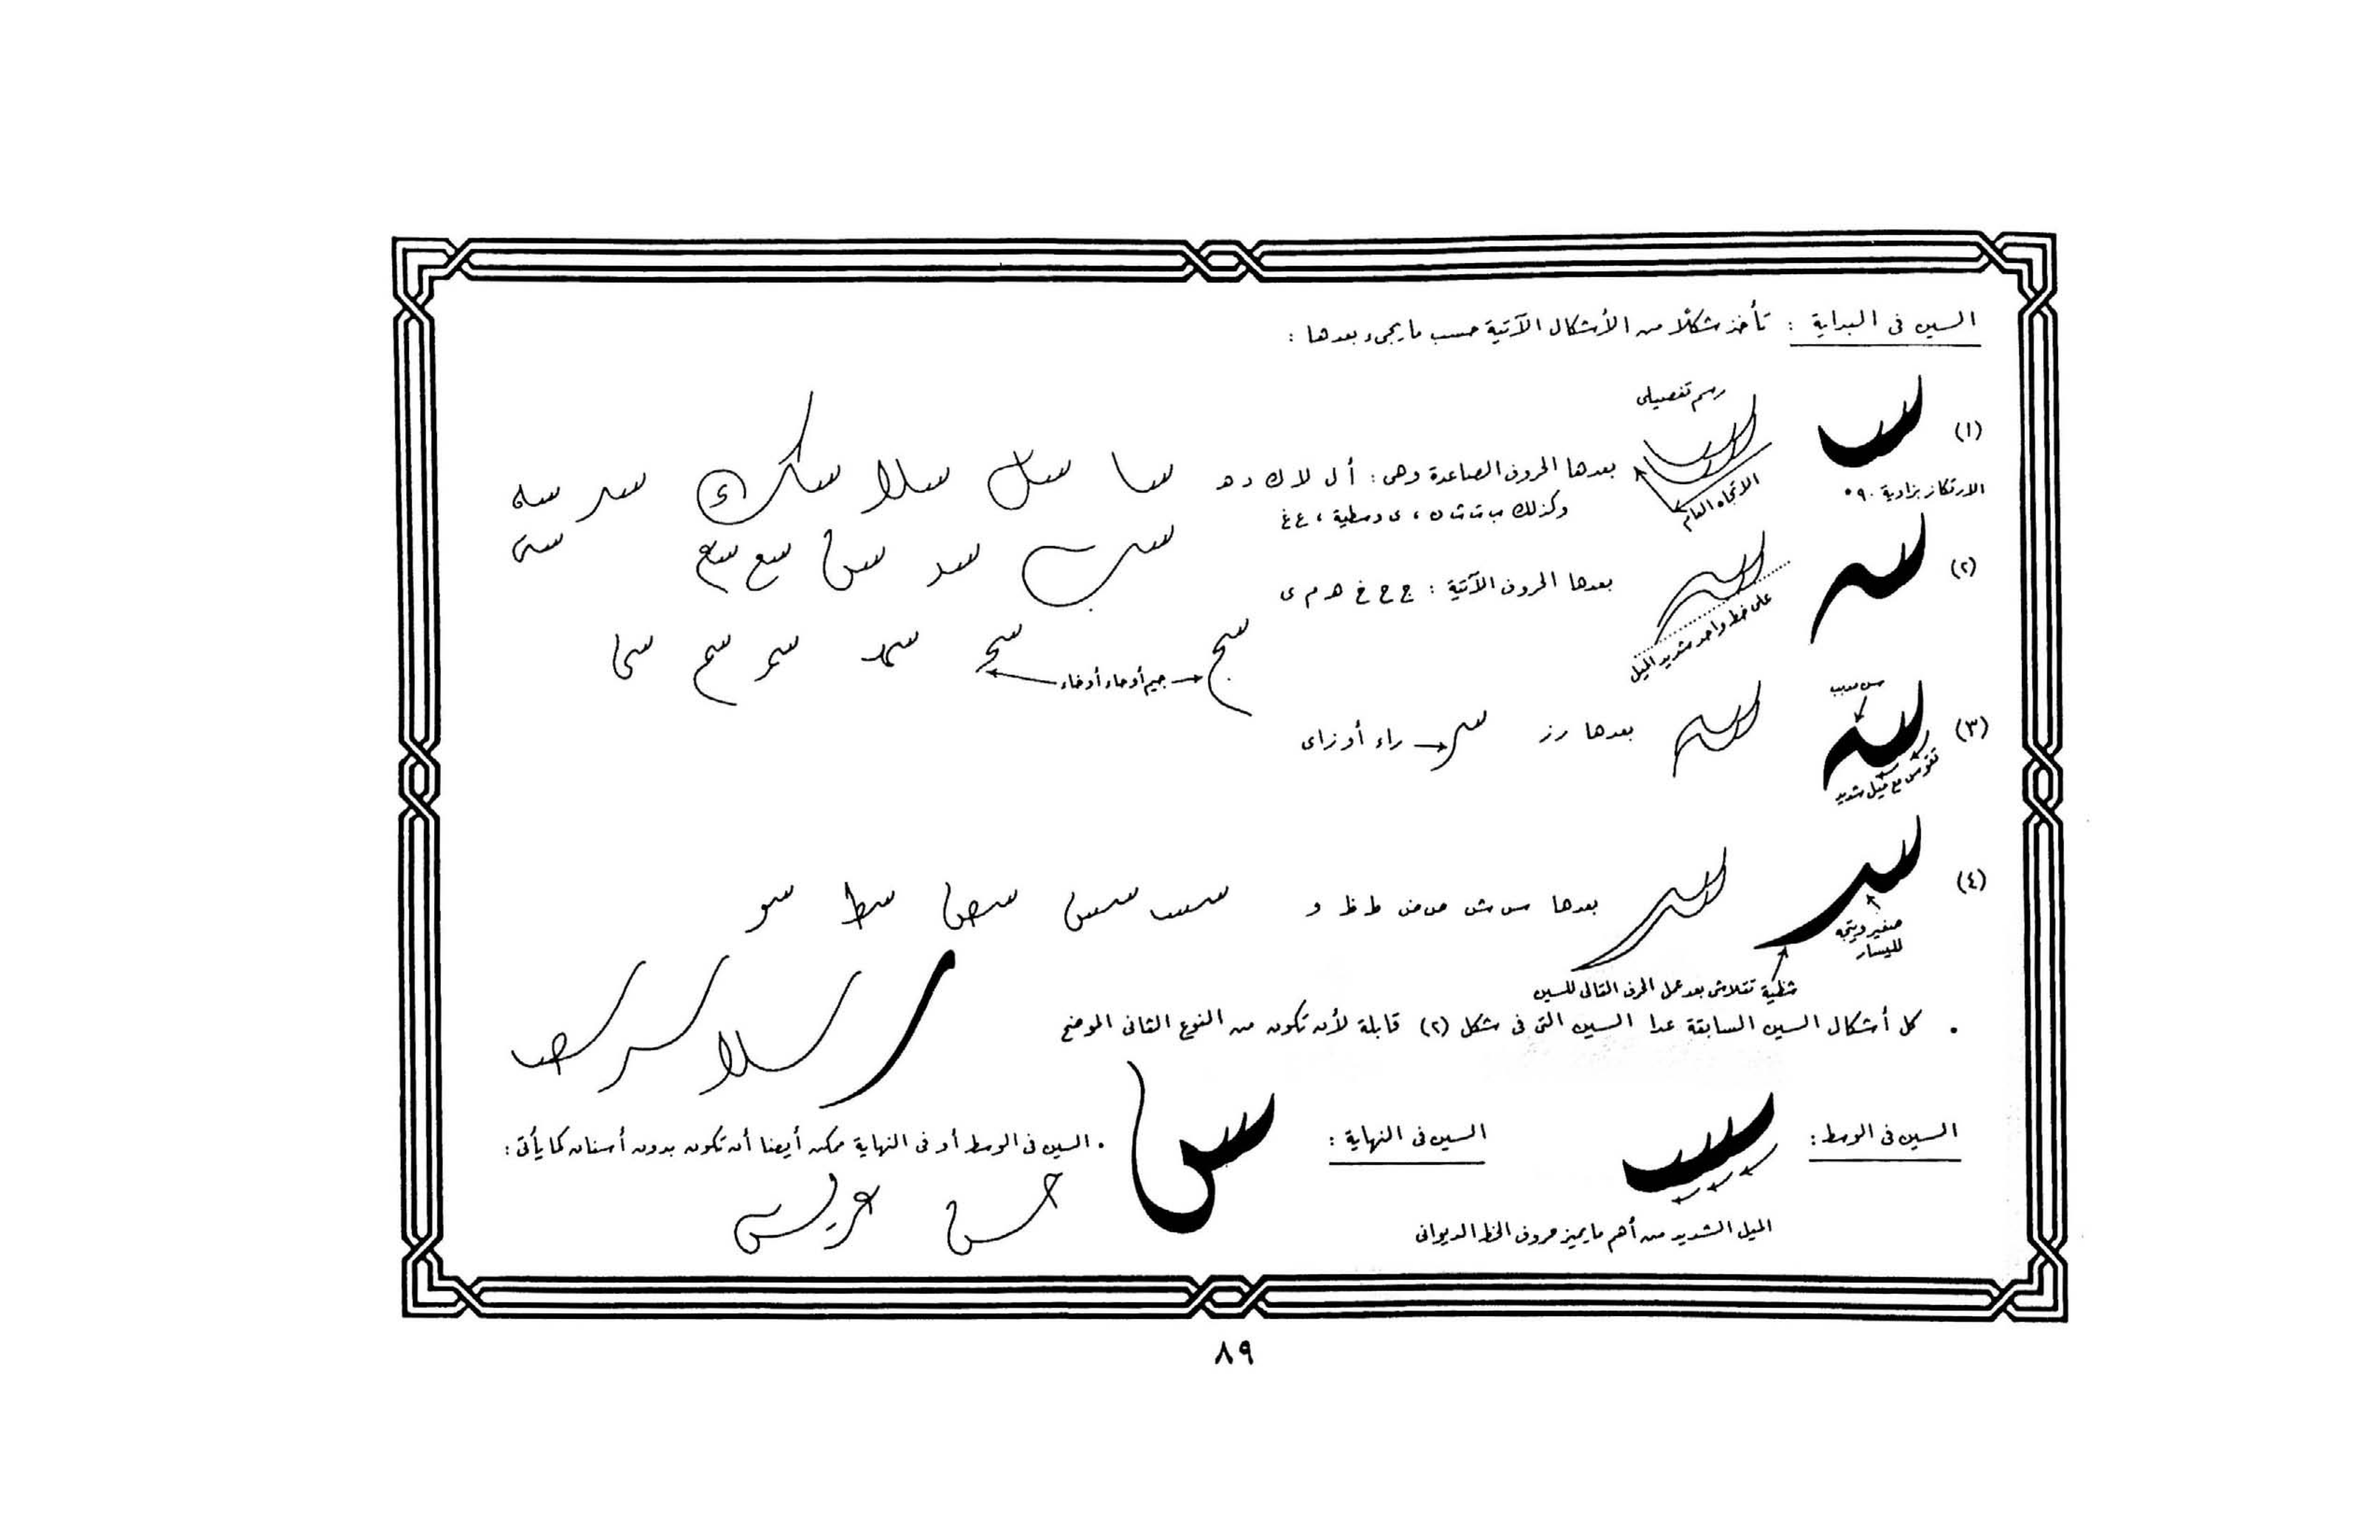 السين فى البداية : تأخذ شكلًا من الأشكال الآتية حسب ما يجىء بعدها :
(١)
رسم تفصيلى
الارتكاز بزاوية ٩٠°
الاتجاه العام
بعدها الحروف الصاعدة وهى : أ ل لا ك د هـ
وكذلك ب ت ث ن ، ى وسطية ، ع غ
سا سل سلا سك سد سه
سب سد س سع سع ستى
(٢)
على خط واحد شديد الميل
بعدها الحروف الآتية : ج ح خ هـ م ى
سج سح سهد سم سم سى
جيم أو حاء أو خاء
(٣)
سن مدبب
تقوس مع ميل شديد
بعدها ر ز
سر راء أو زاى
(٤)
صغير ويتجه لليسار
شظية تتلاشى بعد عمل الحرف التالى للسين
بعدها س ش ص ض ط ظ و
سسب سس سص سط سو
• كل أشكال السين السابقة عدا السين التى فى شكل (٢) قابلة لأن تكون من النوع الثانى الموضح
السين فى الوسط :
سسب
الميل الشديد من أهم ما يميز حروف الخط الديوانى
السين فى النهاية :
س
• السين فى الوسط أو فى النهاية ممكن أيضا أن تكون بدون أسنان كما يأتى :
حس عريس
٨٩